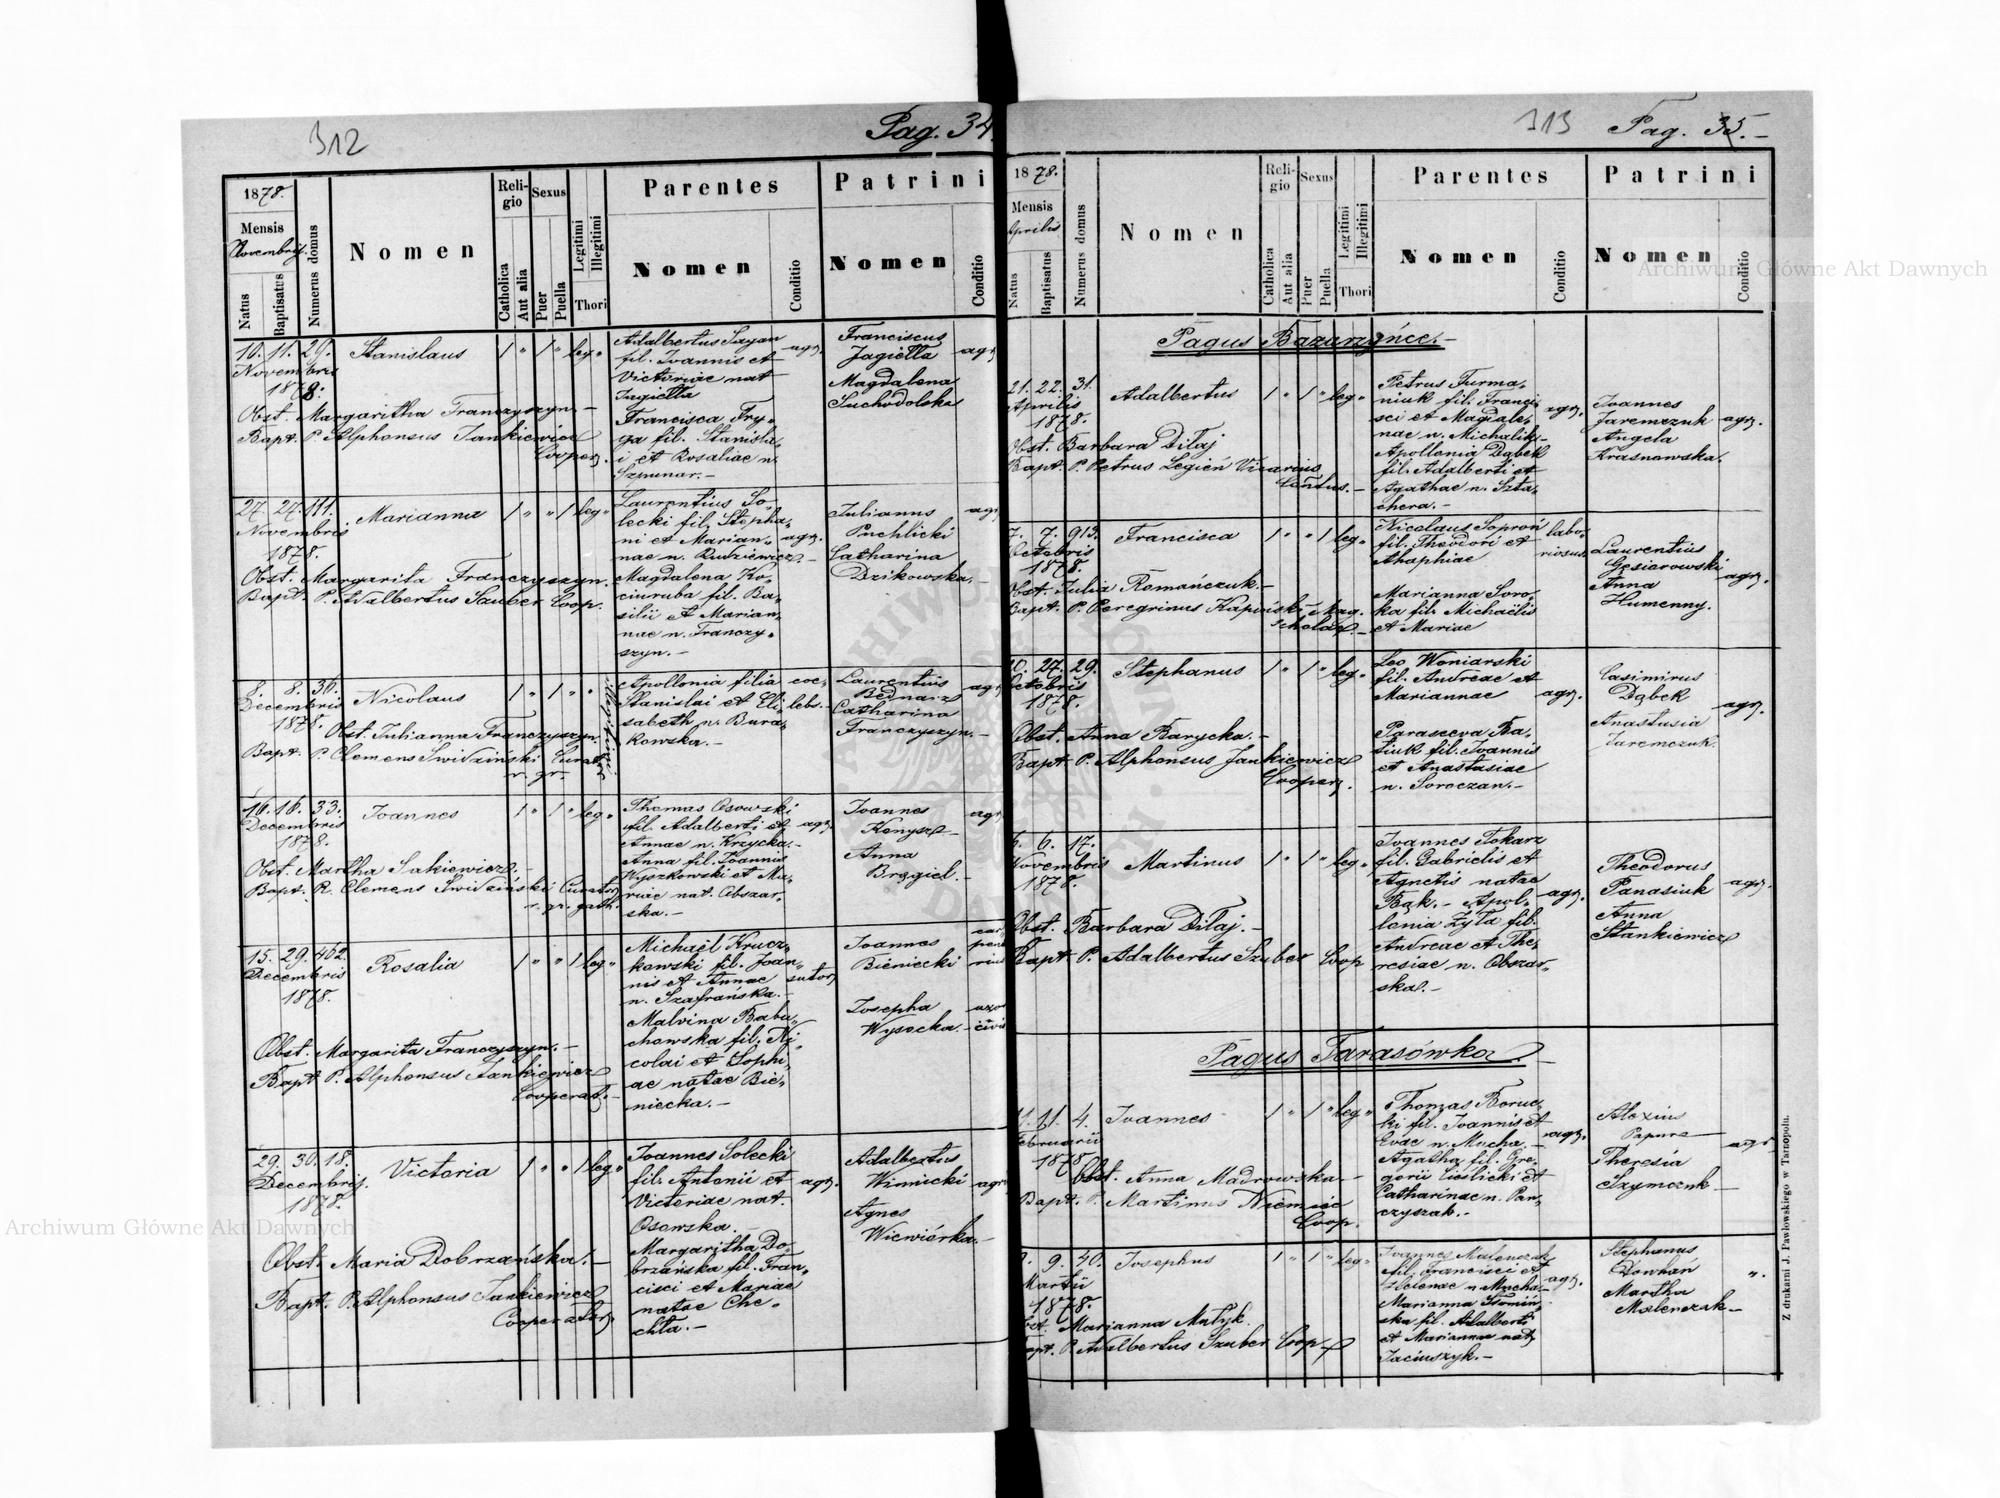 312
Pag. 34
1878.
Mensis
Novembris
Natus
Baptisatus
Numerus domus
Nomen
Religio
Catholica
Aut alia
Sexus
Puer
Puella
Legitimi
Illegitimi
Thori
Parentes
Nomen
Conditio
Patrini
Nomen
Conditio
10. 11. 29. Stanislaus 1 " 1 " leg"
Novembris
1878.
Obst. Margaritha Franczyszyn. -
Bapt. P. Alphonsus Jankiewicz
Cooper.
Adalbertus Sagan
fil. Joannis et
Victoriae nat
Jagiełła
Francisca Fry„
ga fil. Stanisla„
i et Rosaliae n.
Szpunar. -
agr.
Franciscus
Jagiełła
Magdalena
Suchodolska
agr
27. 27. 111. Marianna 1 " " 1 leg"
Novembris
1878.
Obst. Margarita Franczyszyn.
Bapt. P. Adalbertus Szuber Coop.
Laurentius So„
lecki fil. Stepha„
ni et Marian„
nae n. Rudziewicz. -
Magdalena Ko„
ciuruba fil. Ba„
silii et Marian„
nae n. Franczy„
szyn. -
agr.
Julianus
Puchlicki
Catharina
Dzikowska. -
agr
8. 8. 36. Nicolaus 1 " 1 " "
Illegitimi
Decembris
1878.
Obst. Julianna Franczyszyn.
Bapt. P. Clemens Swidziński Curat
r. gr.
Apollonia filia
Stanislai et Eli„
sabeth n. Bura„
kowska. -
coe„
lebs. -
Laurentius
Bednarz
Catharina
Franczyszyn. -
agr
16. 16. 33. Joannes 1 " 1 " leg"
Decembris
1878.
Obst. Martha Sakiewicz. -
Bapt. R. Clemens Swidziński Curator
r. gr. cath.
Thomas Osowski
fil. Adalberti et
Annae n. Krzycka. -
Anna fil. Joannis
Wyszkowski et Ma„
riae nat. Obszar„
ska. -
agr.
Joannes
Konysz -
Anna
Bręgiel. -
agr
15. 29. 402. Rosalia 1 " " 1 leg"
Decembris
1878.
Obst. Margarita Franczyszyn. -
Bapt P. Alphonsus Jankiewicz
Cooperat. -
Michaël Krucz„
kowski fil. Joan„
nis et Annae
n. Szafrańska. -
Malvina Babu„
chowska fil. Ni„
colai et Sophi„
ae natae Bie„
niecka. -
sutor
Joannes
Bieniecki
Josepha
Wysocka. -
29. 30. 18. Victoria 1 " " 1 leg"
Decembris.
1878.
Obst. Maria Dobrzańska. -
Bapt. P. Alphonsus Jankiewicz
Cooperator
Joannes Solecki
fil. Antonii et
Victoriae nat.
Osowska. -
Margaritha Do„
brzańska fil. Fran„
cisci et Mariae
natae Che„
chła. -
agr.
Adalbertus
Winnicki
Agnes
Wiewiórka. -
agr
313 Pag. 35. -
1878.
Mensis
Aprilis
Natus
Baptisatus
Numerus domus
Nomen
Religio
Catholica
Aut alia
Sexus
Puer
Puella
Legitimi
Illegitimi
Thori
Parentes
Nomen
Conditio
Patrini
Nomen
Conditio
Pagus Bazarzyńce. -
21. 22. 31. Adalbertus 1 " 1 " leg"
Aprilis
1878.
Obst. Barbara Diłaj
Bapt. P. Petrus Legień Vicarius
Petrus Furma„
niuk fil. Franci„
sci et Magdale„
nae n. Michalik -
Apollonia Dąbek
fil. Adalberti et
Agathae n. Szta„
chera. -
agr.
Joannes
Jaremczuk
Angela
Krasnowska.
agr.
7. 7. 913. Francisca 1 " " 1 leg"
Octobris
1878.
Obst. Julia Romańczuk. -
Bapt. P. Peregrinus Kapiński Mag.
scholae. -
Nicolaus Soproń
fil. Theodori et
Ahaphiae
Marianna Soro„
ka fil. Michaëlis
et Mariae
labo„
riosus
Laurentius
Gęsiorowski
Anna
Humenny.
agr.
20. 27. 29. Stephanus 1 " 1 " leg"
Octobris
1878.
Obst. Anna Barycka. -
Bapt. P. Alphonsus Jankiewicz
Cooper.
Leo Woniarski
fil. Andreae et
Mariannae
Parasceva Ba„
tiuk fil. Joannis
et Anastasiae
n. Soroczan. -
agr.
Casimirus
Dąbek
Anastasia
Jaremczuk.
agr.
6. 6. 17. Martinus 1 " 1 " leg"
Novembris
1878.
Obst. Barbara Diłaj. -
Bapt. P. Adalbertus Szuber Coop
Joannes Tokarz
fil. Gabrielis et
Agnetis natae
Bąk. - Apol„
lonia Żyła fil.
Andreae et The„
resiae n. Obszar„
ska. -
agr.
Theodorus
Panasiuk
Anna
Stankiewicz
agr.
Pagus Tarasówka.
11. 11. 4. Joannes 1 " 1 " leg"
Februarii
1878
Obst. Anna Madrowska -
Bapt. P. Martinus Niemiec
Coop.
Thomas Boruc„
ki fil. Joannis et
Evae n. Mucha. -
Agatha fil. Gre„
gorii Cieślicki et
Catharinae n. Pan„
czyszak. -
agr.
Alexius
Papura
Theresia
Szymczuk -
agr
9. 9. 40. Josephus 1 " 1 " leg"
Martii
1878.
Obst. Marianna Matyk.
Bapt. P. Adalbertus Szuber Coop
Joannes Malenczak
fil. Francisci et
Helenae n Mucha. -
Marianna Słomiń„
ska fil. Adalberti
et Mariannae nat
Jaciuszyk. -
agr.
Stephanus
Dowhan
Martha
Malenczak -
".
Z drukarni J. Pawłowskiego w Tarnopolu.
Archiwum Główne Akt Dawnych
Archiwum Główne Akt Dawnych